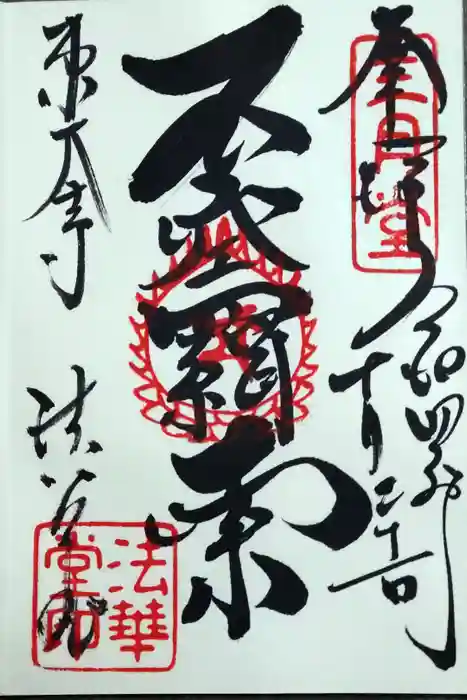 奉拝
三月堂
令和四年
十月二十一日
不空羂索
東大寺 法華堂
法華
堂印